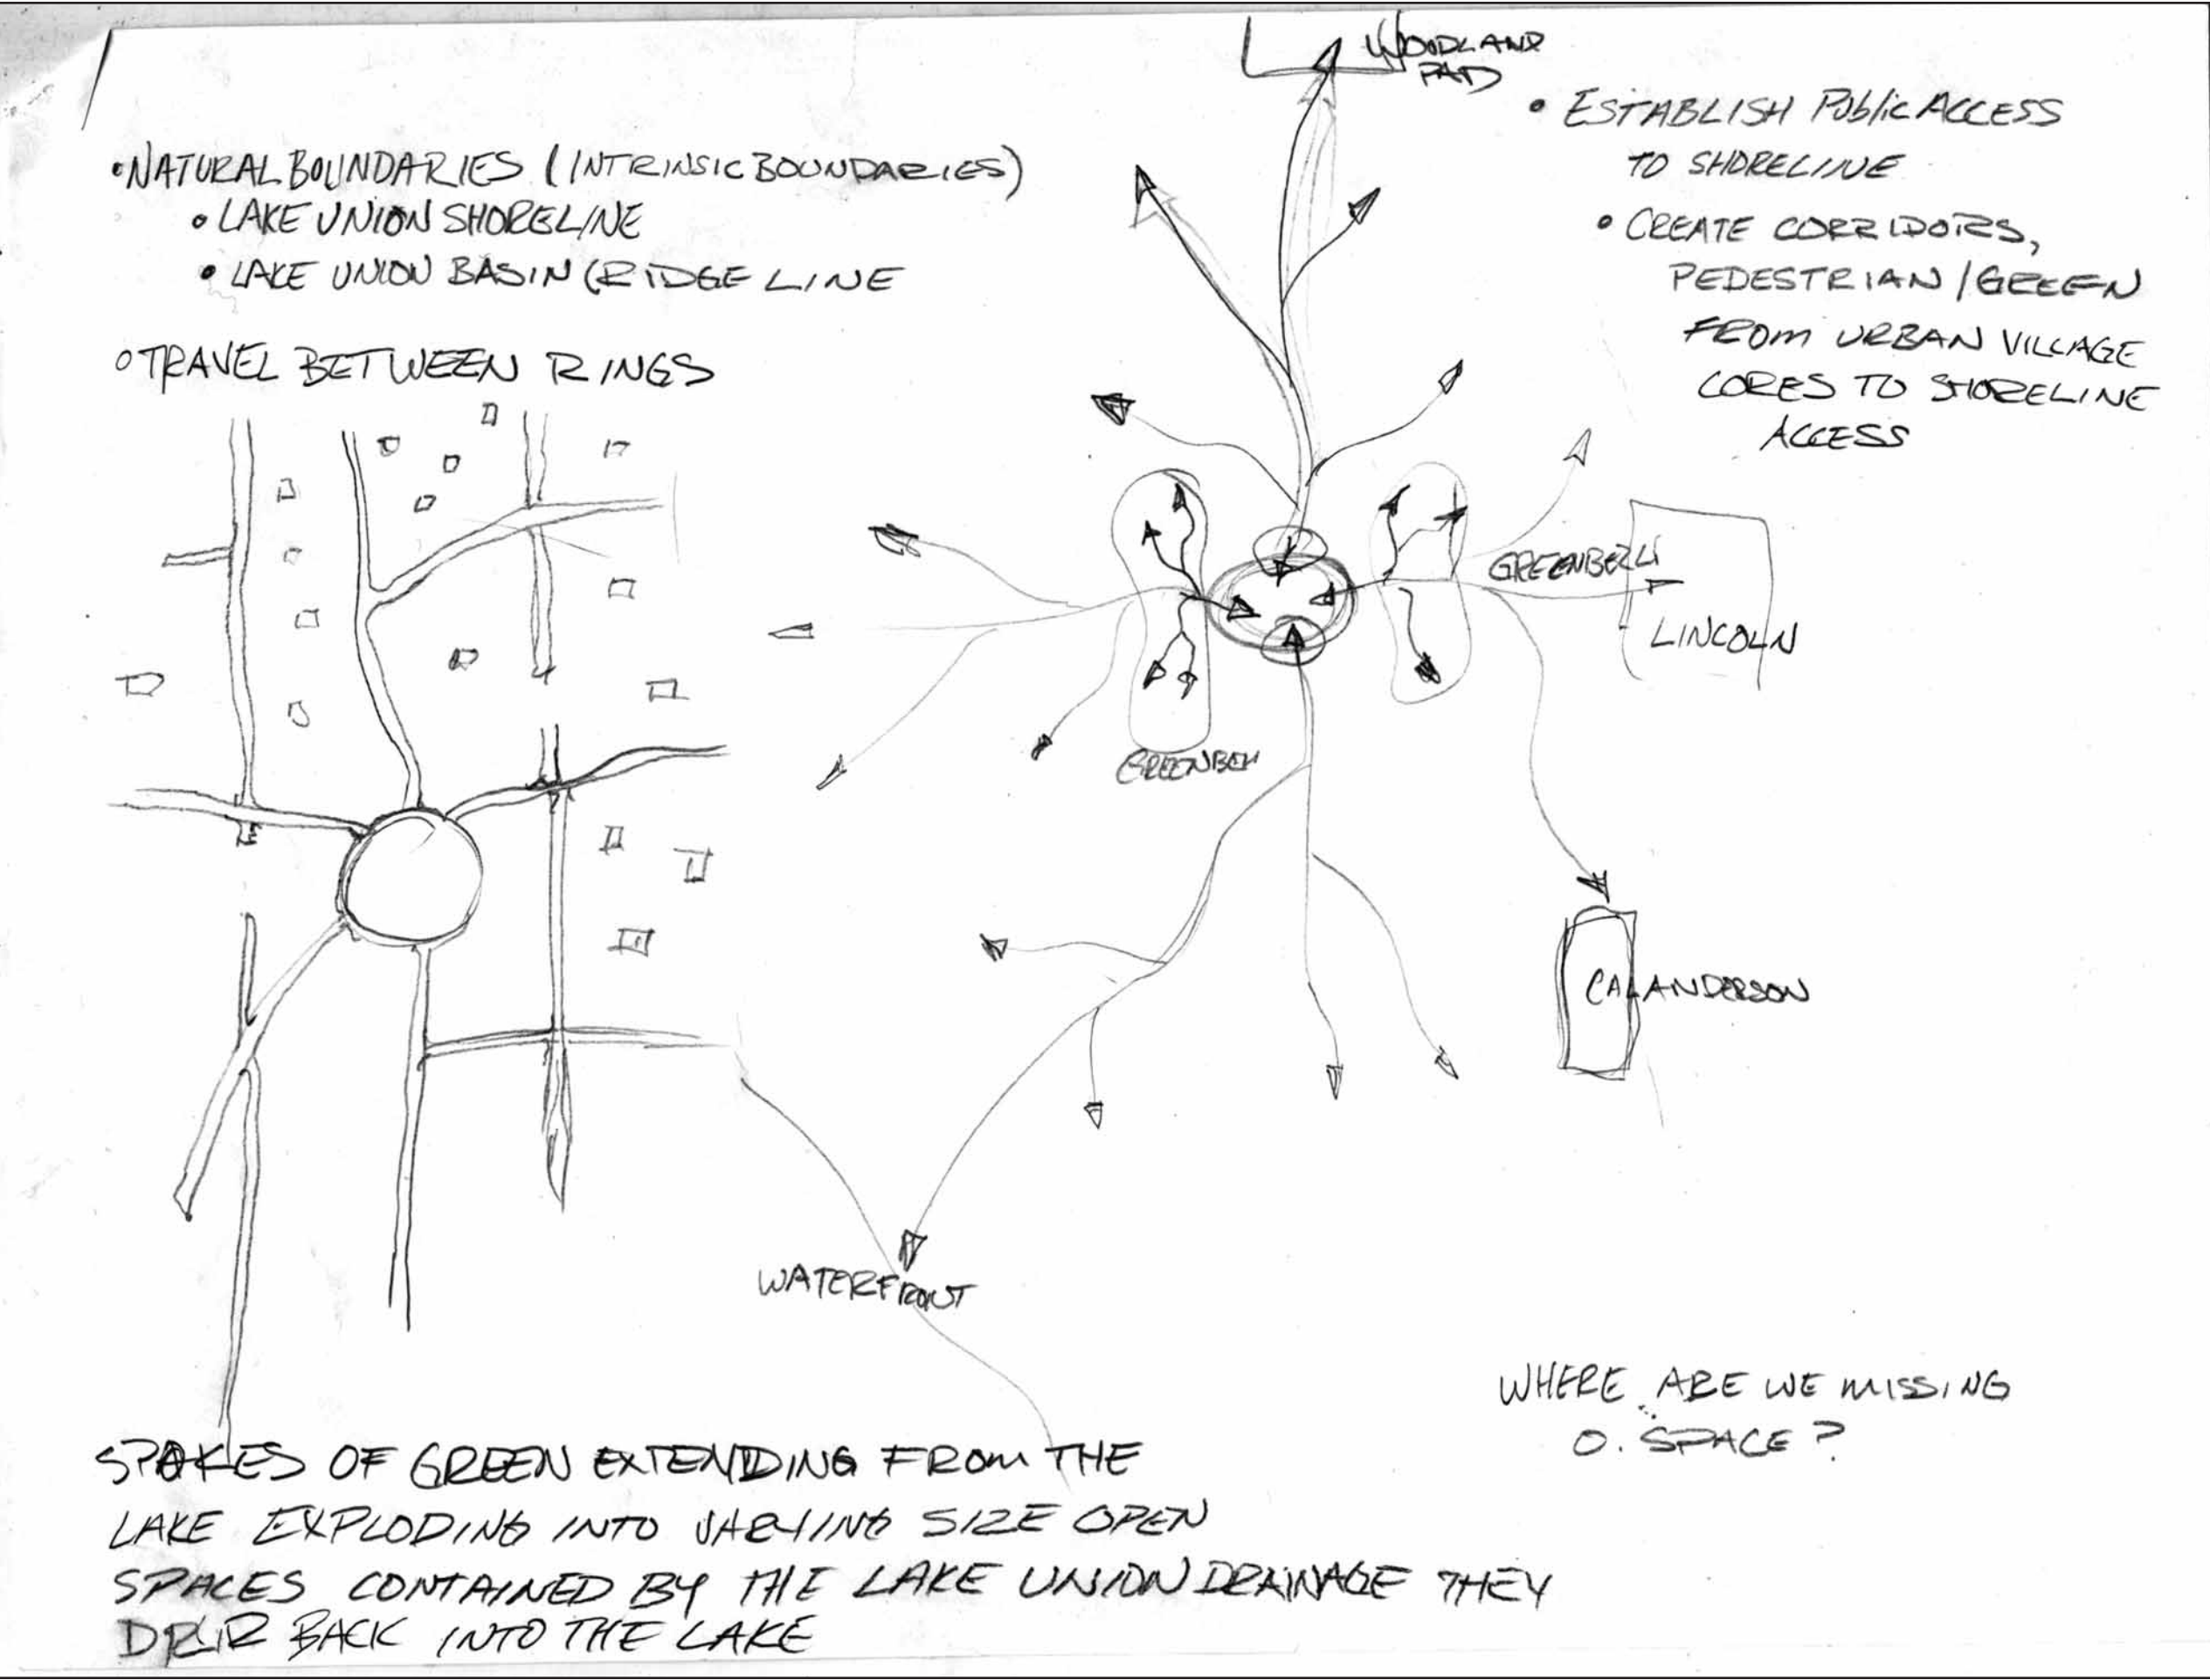 •NATURAL BOUNDARIES (INTRINSIC BOUNDARIES)
• LAKE UNION SHORELINE
• LAKE UNION BASIN (RIDGE LINE
○ TRAVEL BETWEEN RINGS
WOODLAND
• ESTABLISH Public ACCESS
TO SHORELINE
• CREATE CORRIDORS,
PEDESTRIAN / GREEN
FROM URBAN VILLAGE
CORES TO SHORELINE
ACCESS
GREENBELT
LINCOLN
GREENBELT
CAL ANDERSON
WATERFRONT
WHERE ARE WE MISSING
O. SPACE?
SPOKES OF GREEN EXTENDING FROM THE
LAKE EXPLODING INTO VARYING SIZE OPEN
SPACES CONTAINED BY THE LAKE UNION DRAINAGE THEY
BACK INTO THE LAKE